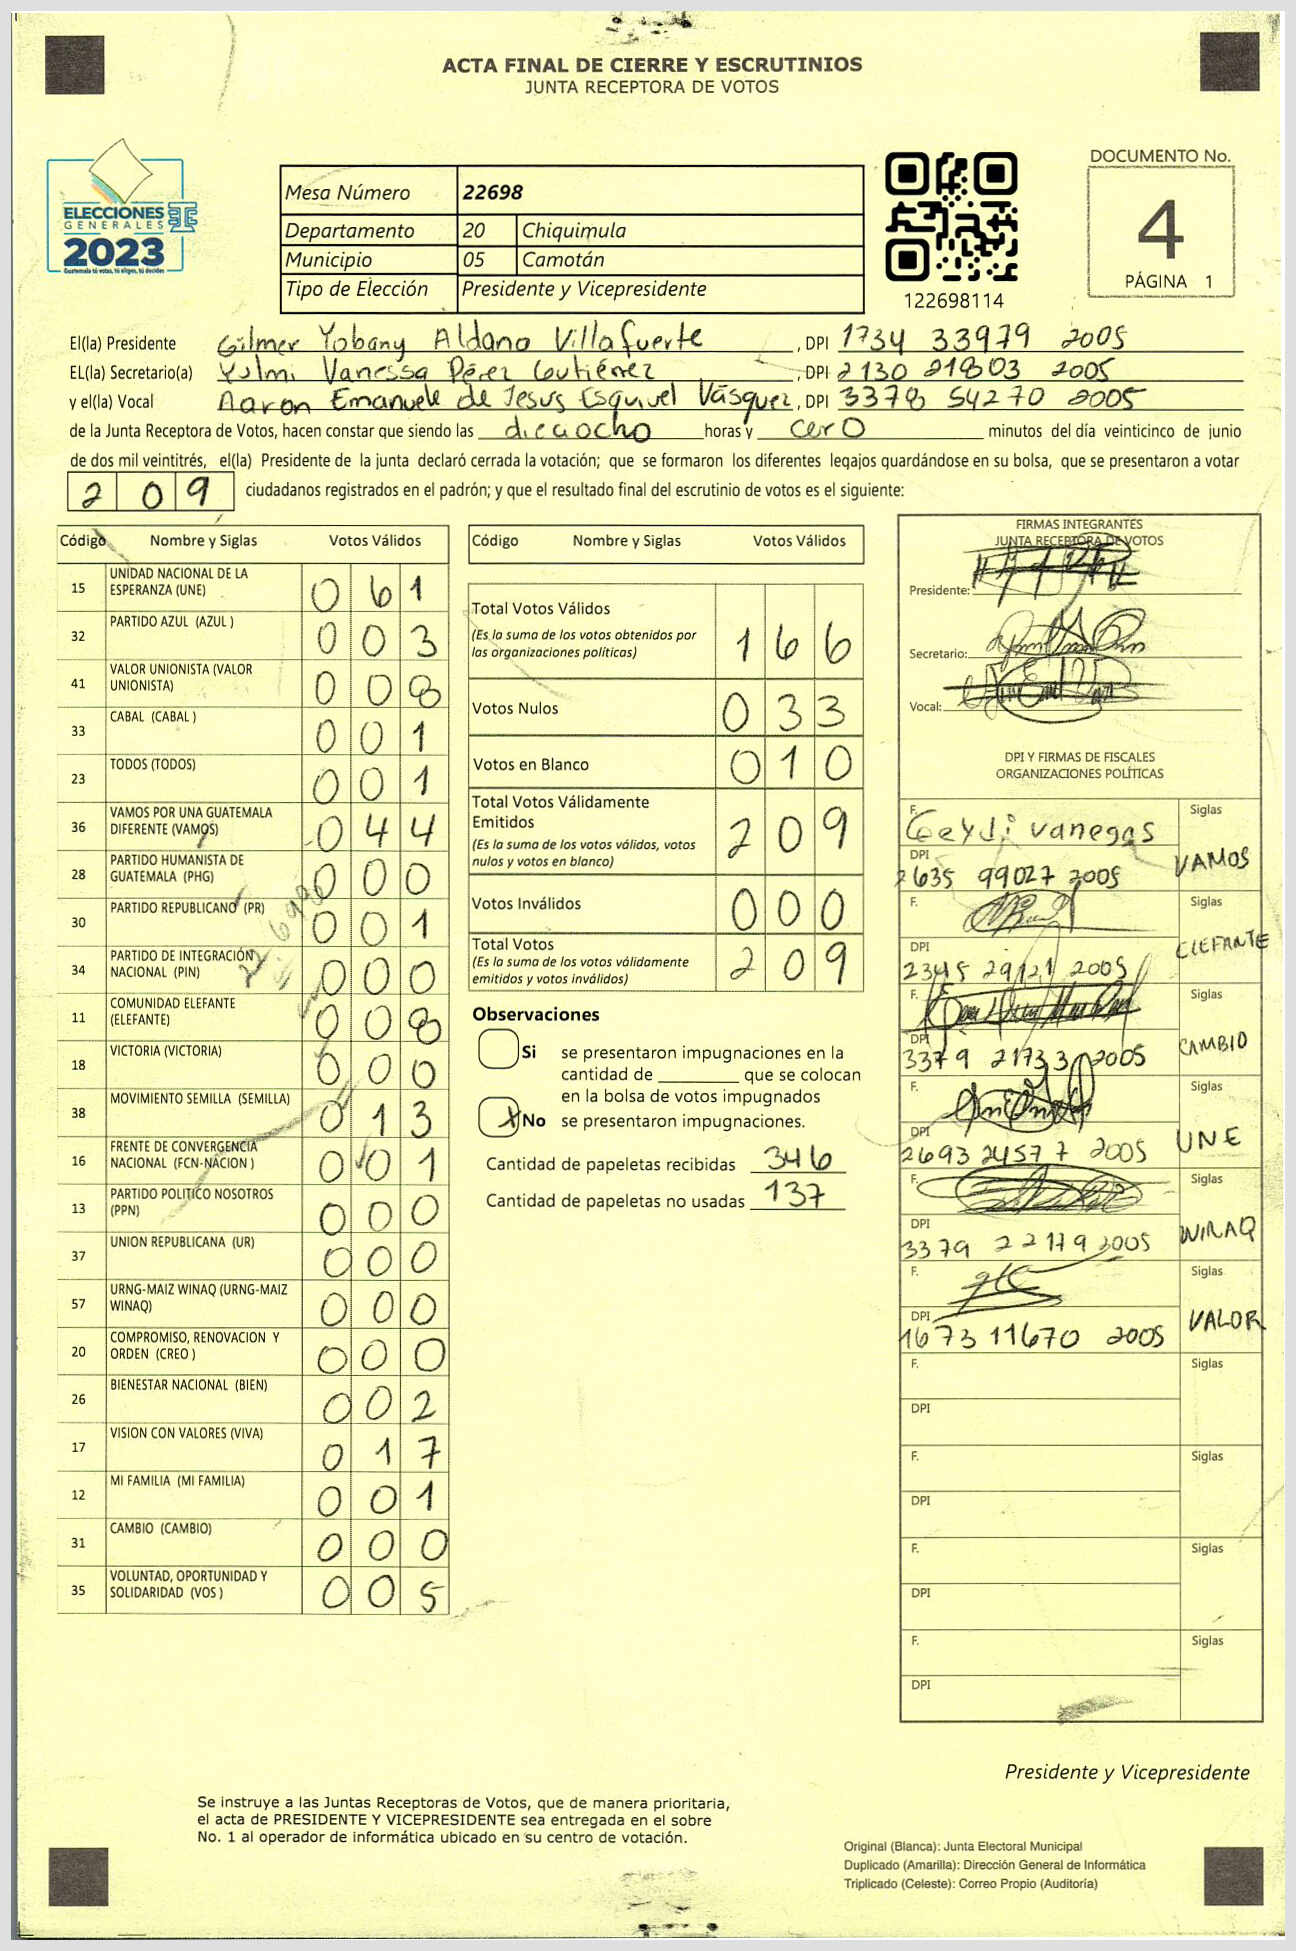 ACTA FINAL DE CIERRE Y ESCRUTINIOS
JUNTA RECEPTORA DE VOTOS
ELECCIONES
GENERALES
2023
Guatemala tú votas, tú eliges, tú decides
Mesa Número 22698
Departamento 20 Chiquimula
Municipio 05 Camotán
Tipo de Elección Presidente y Vicepresidente
122698114
DOCUMENTO No.
4
PÁGINA 1
El(la) Presidente Gilmer Yobany Aldana Villafuerte, DPI 1734 33979 2005
EL(la) Secretario(a) Yulmi Vanessa Pérez Gutiérrez, DPI 2130 21803 2005
y el(la) Vocal Aaron Emanuele de Jesus Esquivel Vásquez, DPI 3378 54270 2005
de la Junta Receptora de Votos, hacen constar que siendo las dieciocho horas y cero minutos del día veinticinco de junio
de dos mil veintitrés, el(la) Presidente de la junta declaró cerrada la votación; que se formaron los diferentes legajos guardándose en su bolsa, que se presentaron a votar
209 ciudadanos registrados en el padrón; y que el resultado final del escrutinio de votos es el siguiente:
Código Nombre y Siglas Votos Válidos
15 UNIDAD NACIONAL DE LA ESPERANZA (UNE) 061
32 PARTIDO AZUL (AZUL ) 003
41 VALOR UNIONISTA (VALOR UNIONISTA) 008
33 CABAL (CABAL ) 001
23 TODOS (TODOS) 001
36 VAMOS POR UNA GUATEMALA DIFERENTE (VAMOS) 044
28 PARTIDO HUMANISTA DE GUATEMALA (PHG) 000
30 PARTIDO REPUBLICANO (PR) 001
34 PARTIDO DE INTEGRACIÓN NACIONAL (PIN) 000
11 COMUNIDAD ELEFANTE (ELEFANTE) 008
18 VICTORIA (VICTORIA) 000
38 MOVIMIENTO SEMILLA (SEMILLA) 013
16 FRENTE DE CONVERGENCIA NACIONAL (FCN-NACION ) 001
13 PARTIDO POLITICO NOSOTROS (PPN) 000
37 UNION REPUBLICANA (UR) 000
57 URNG-MAIZ WINAQ (URNG-MAIZ WINAQ) 000
20 COMPROMISO, RENOVACION Y ORDEN (CREO ) 000
26 BIENESTAR NACIONAL (BIEN) 002
17 VISION CON VALORES (VIVA) 017
12 MI FAMILIA (MI FAMILIA) 001
31 CAMBIO (CAMBIO) 000
35 VOLUNTAD, OPORTUNIDAD Y SOLIDARIDAD (VOS ) 005
Código Nombre y Siglas Votos Válidos
Total Votos Válidos 166
(Es la suma de los votos obtenidos por
las organizaciones políticas)
Votos Nulos 033
Votos en Blanco 010
Total Votos Válidamente
Emitidos 209
(Es la suma de los votos válidos, votos
nulos y votos en blanco)
Votos Inválidos 000
Total Votos 209
(Es la suma de los votos válidamente
emitidos y votos inválidos)
Observaciones
Si se presentaron impugnaciones en la
cantidad de ________ que se colocan
en la bolsa de votos impugnados
X No se presentaron impugnaciones.
Cantidad de papeletas recibidas 346
Cantidad de papeletas no usadas 137
FIRMAS INTEGRANTES
JUNTA RECEPTORA DE VOTOS
Presidente:
Secretario:
Vocal:
DPI Y FIRMAS DE FISCALES
ORGANIZACIONES POLÍTICAS
F. Geydi vanegas Siglas
DPI 2635 99027 2005 VAMOS
F. Siglas
DPI 2345 29121 2005 ELEFANTE
F. Siglas
DPI 3379 21733 2005 CAMBIO
F. Siglas
DPI 2693 24577 2005 UNE
F. Siglas
DPI 3379 22179 2005 WINAQ
F. Siglas
DPI 1673 11670 2005 VALOR
F. Siglas
DPI
F. Siglas
DPI
F. Siglas
DPI
F. Siglas
DPI
Presidente y Vicepresidente
Se instruye a las Juntas Receptoras de Votos, que de manera prioritaria,
el acta de PRESIDENTE Y VICEPRESIDENTE sea entregada en el sobre
No. 1 al operador de informática ubicado en su centro de votación.
Original (Blanca): Junta Electoral Municipal
Duplicado (Amarilla): Dirección General de Informática
Triplicado (Celeste): Correo Propio (Auditoría)